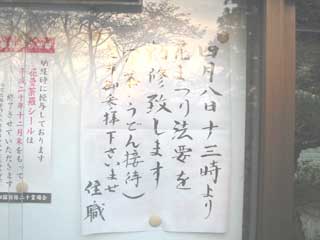 四月八日十三時より
花まつり法要を
修致します
茶・うどん接待）
御参拝下さいませ
住職
納經時に授与しております
シールは
平成二十年十二月末をもって
終了させていただきます
二十霊場会